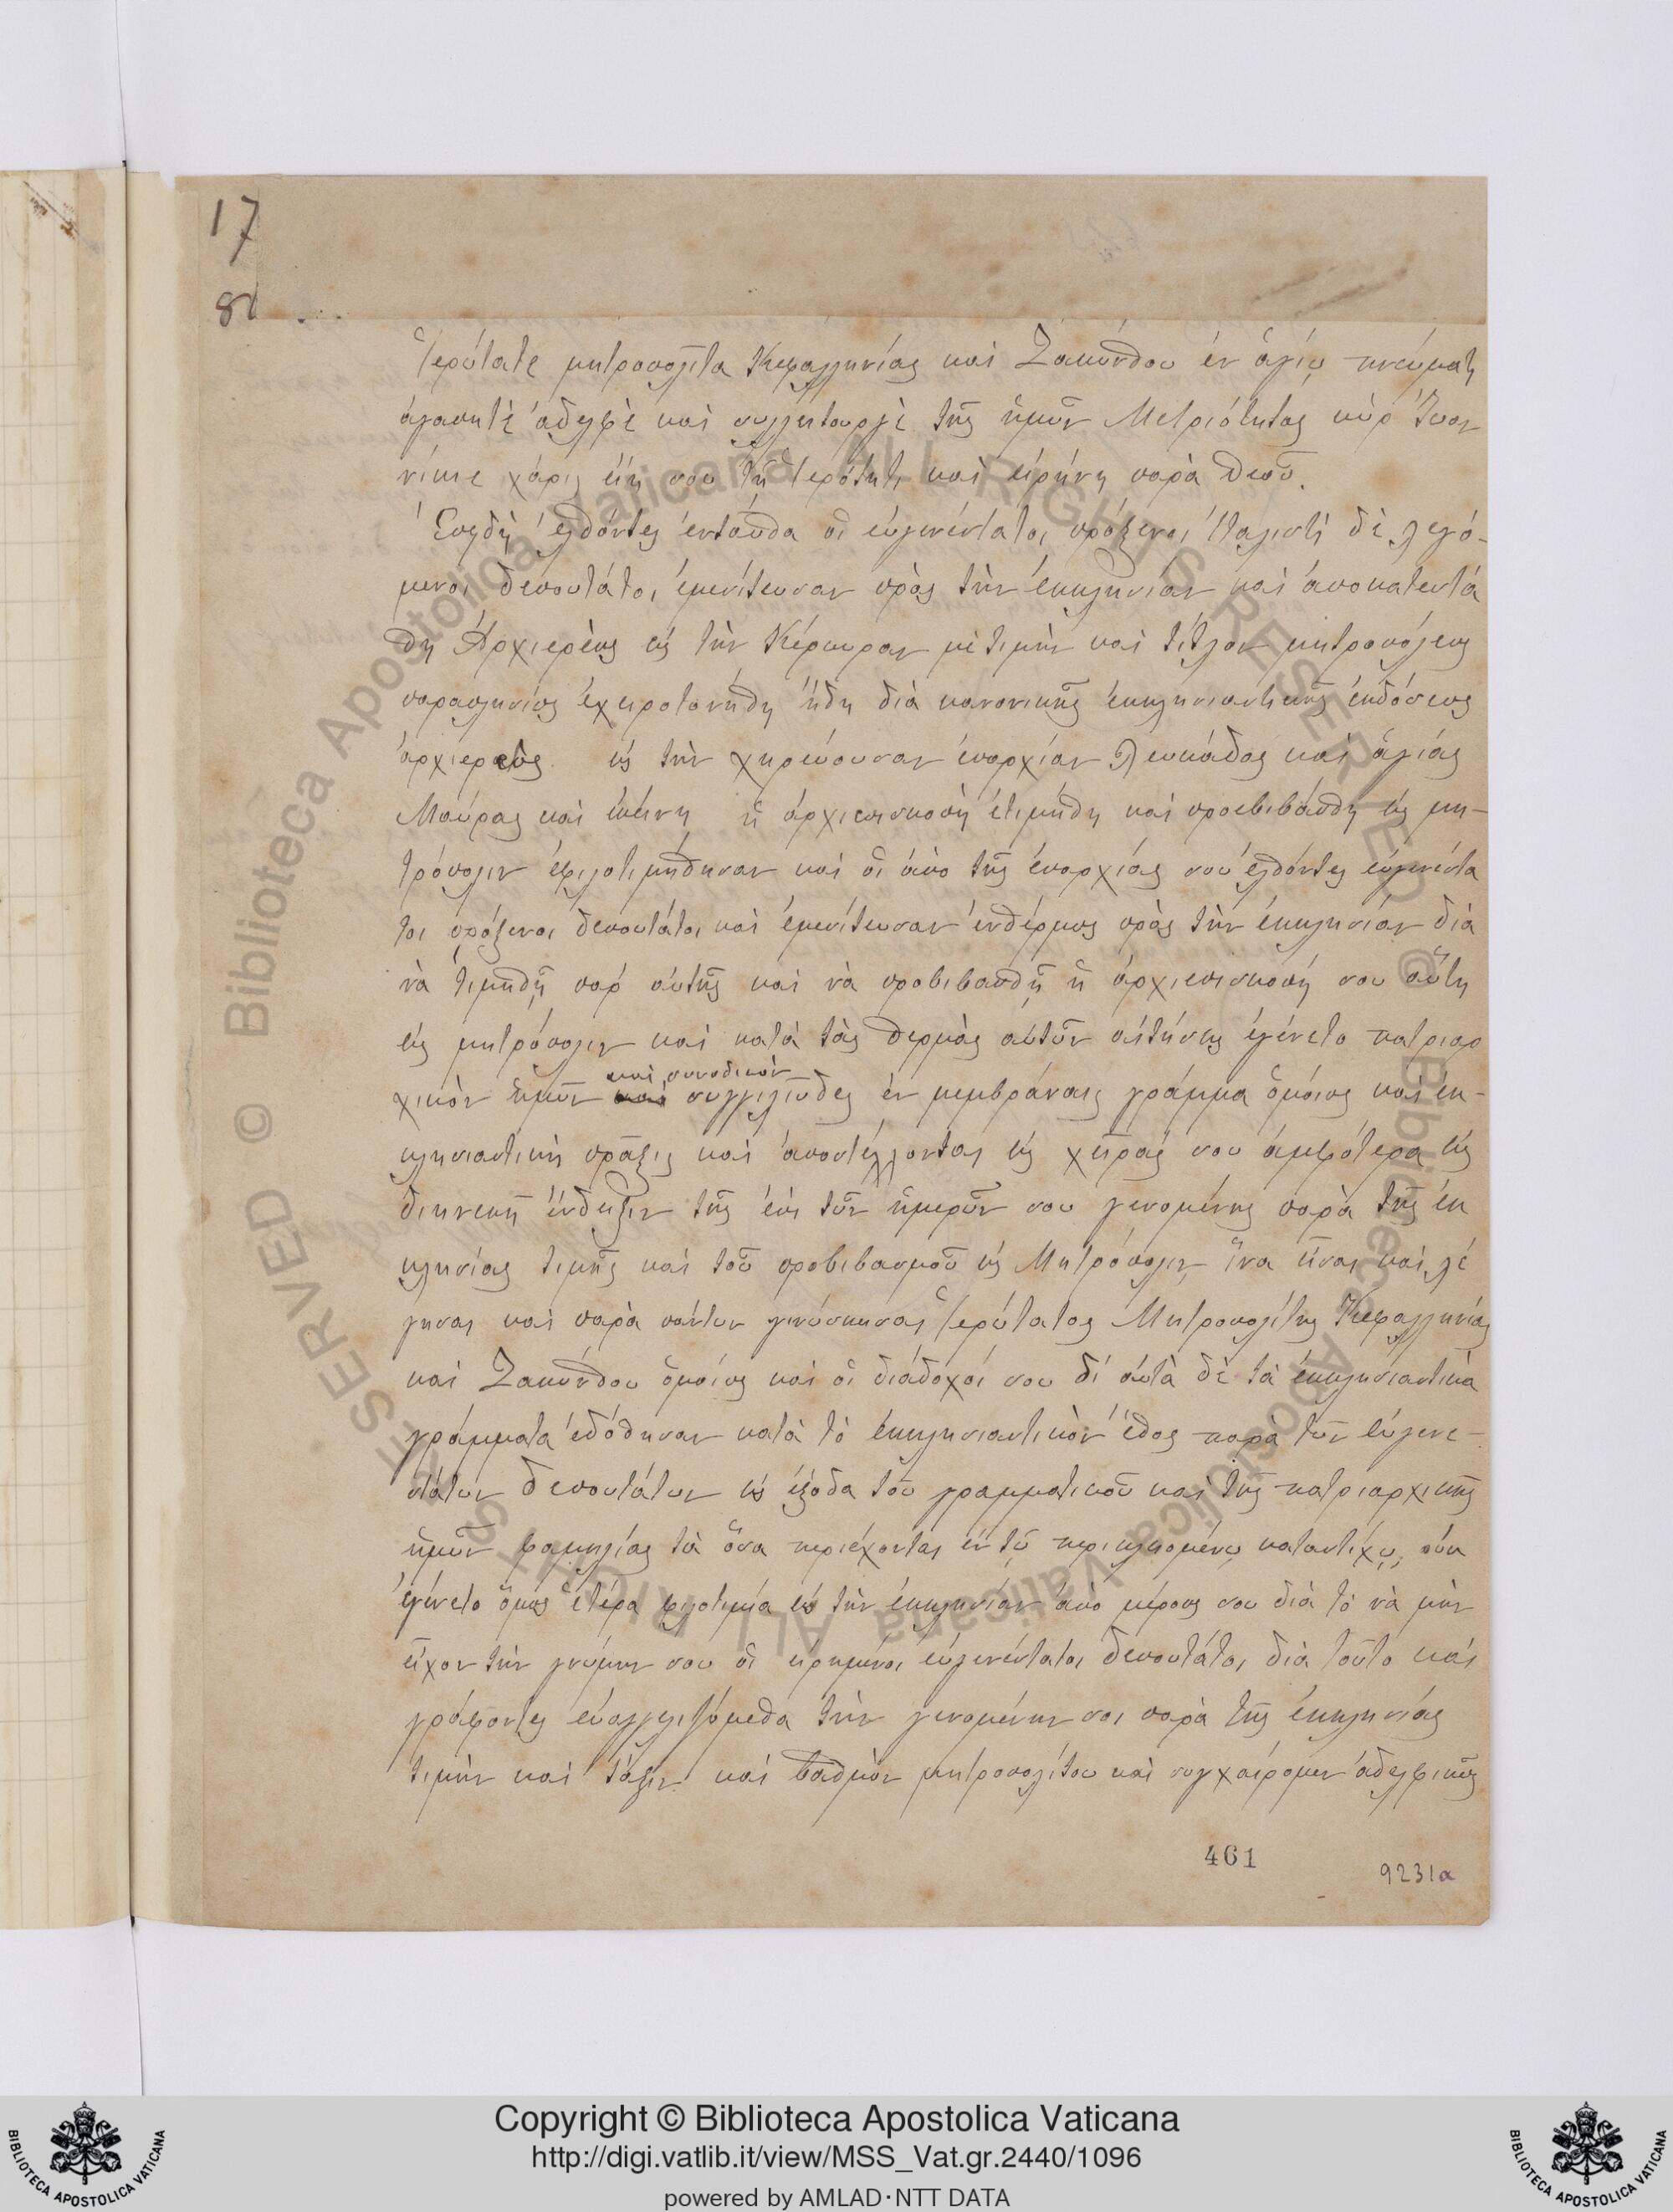 17
81
Ἱερώτατε μητροπολῖτα Κεφαλληνίας καὶ Ζακύνθου ἐν ἁγίῳ πνεύματι
ἀγαπητὲ ἀδελφὲ καὶ συλλειτουργὲ τῆς ἡμῶν Μετριότητος κὺρ Ἰωαν
νίκιε χάρις εἴη σου τῇ Ἱερότητι καὶ εἰρήνη παρὰ Θεοῦ.
Ἐπειδὴ ἐλθόντες ἐνταῦθα οἱ εὐγενέστατοι πρόξενοι Ἰταλιστὶ δὲ λεγό-
μενοι δεπουτάτοι ἐμεσίτευσαν πρὸς τὴν ἐκκλησίαν καὶ ἀποκατεστά
θη Ἀρχιερεὺς εἰς τὴν Κέρκυραν μὲ τιμὴν καὶ τίτλον μητροπόλεως
παραπλησίως ἐχειροτονήθη ἤδη διὰ κανονικῆς ἐκκλησιαστικῆς ἐκδόσεως
ἀρχιερεὺς εἰς τὴν χηρεύουσαν ἐπαρχίαν Λευκάδος καὶ ἁγίας
Μαύρας καὶ ἐκείνη ἡ ἀρχιεπισκοπὴ ἐτιμήθη καὶ προεβιβάσθη εἰς μη-
τρόπολιν ἐφιλοτιμήθησαν καὶ οἱ ἀπὸ τῆς ἐπαρχίας σου ἐλθόντες εὐγενέστα
τοι πρόξενοι δεπουτάτοι καὶ ἐμεσίτευσαν ἐνθέρμως πρὸς τὴν ἐκκλησίαν διὰ
νὰ τιμηθῇ παρ αὐτῆς καὶ νὰ προβιβασθῇ ἡ ἀρχιεπισκοπή σου αὕτη
εἰς μητρόπολιν καὶ κατὰ τὰς θερμὰς αὐτῶν αἰτήσεις ἐγένετο πατριαρ
καὶ συνοδικὸν
χικὸν ἡμῶν καὶ συγγιλιῶδες ἐν μεμβράναις γράμμα ὁμοίως καὶ ἐκ-
κλησιαστικὴ πρᾶξις καὶ ἀποστέλλονται εἰς χεῖράς σου ἀμφότερα εἰς
διηνεκῆ ἔνδειξιν τῆς ἐπὶ τῶν ἡμερῶν σου γενομένης παρὰ τῆς ἐκ
κλησίας τιμῆς καὶ τοῦ προβιβασμοῦ εἰς Μητρόπολιν ἵνα εἶναι καὶ λέ
γησαι καὶ παρὰ πάντων γινώσκησαι Ἱερώτατος Μητροπολίτης Κεφαλληνίας
καὶ Ζακύνθου ὁμοίως καὶ οἱ διάδοχοί σου δι αὐτὰ δὲ τὰ ἐκκλησιαστικὰ
γράμματα ἐδόθησαν κατὰ τὸ ἐκκλησιαστικὸν ἔθος παρὰ τῶν εὐγενε-
στάτων δεπουτάτων εἰς ἔξοδα τοῦ γραμματικοῦ καὶ τῆς πατριαρχικῆς
ἡμῶν φαμηλίας τὰ ὅσα περιέχονται ἐν τῷ περικλεισμένῳ καταστίχῳ, οὐκ
ἐγένετο ὅμως ἑτέρα φιλοτιμία εἰς τὴν ἐκκλησίαν ἀπὸ μέρους σου διὰ τὸ νὰ μὴν
εἶχον τὴν γνώμην σου οἱ εἰρημένοι εὐγενέστατοι δεπουτάτοι διὰ τοῦτο καὶ
γράφοντες εὐαγγελιζόμεθα τὴν γενομένην σοι παρὰ τῆς ἐκκλησίας
τιμὴν καὶ τάξιν καὶ βαθμὸν μητροπολίτου καὶ συγχαίρομεν ἀδελφικῶς
461
9231a
© Biblioteca Apostolica Vaticana ALL RIGHTS RESERVED © Biblioteca Apostolica Vaticana ALL RIGHTS RESERVED
Copyright © Biblioteca Apostolica Vaticana
http://digi.vatlib.it/view/MSS_Vat.gr.2440/1096
powered by AMLAD·NTT DATA
BIBLIOTECA APOSTOLICA VATICANA
BIBLIOTECA APOSTOLICA VATICANA